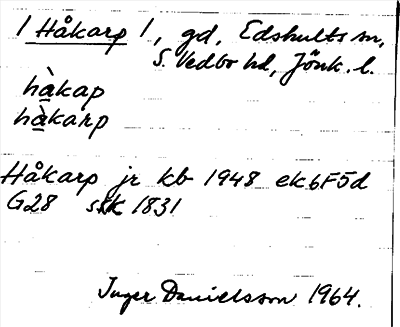 / Håkarp /, gd, Edshults sn,
S. Vedbo hd, Jönk. l.
hàkap
hàkarp
Håkarp jr kb 1948 ek 6F5d
G28 ssk 1831
Inger Danielsson 1964.